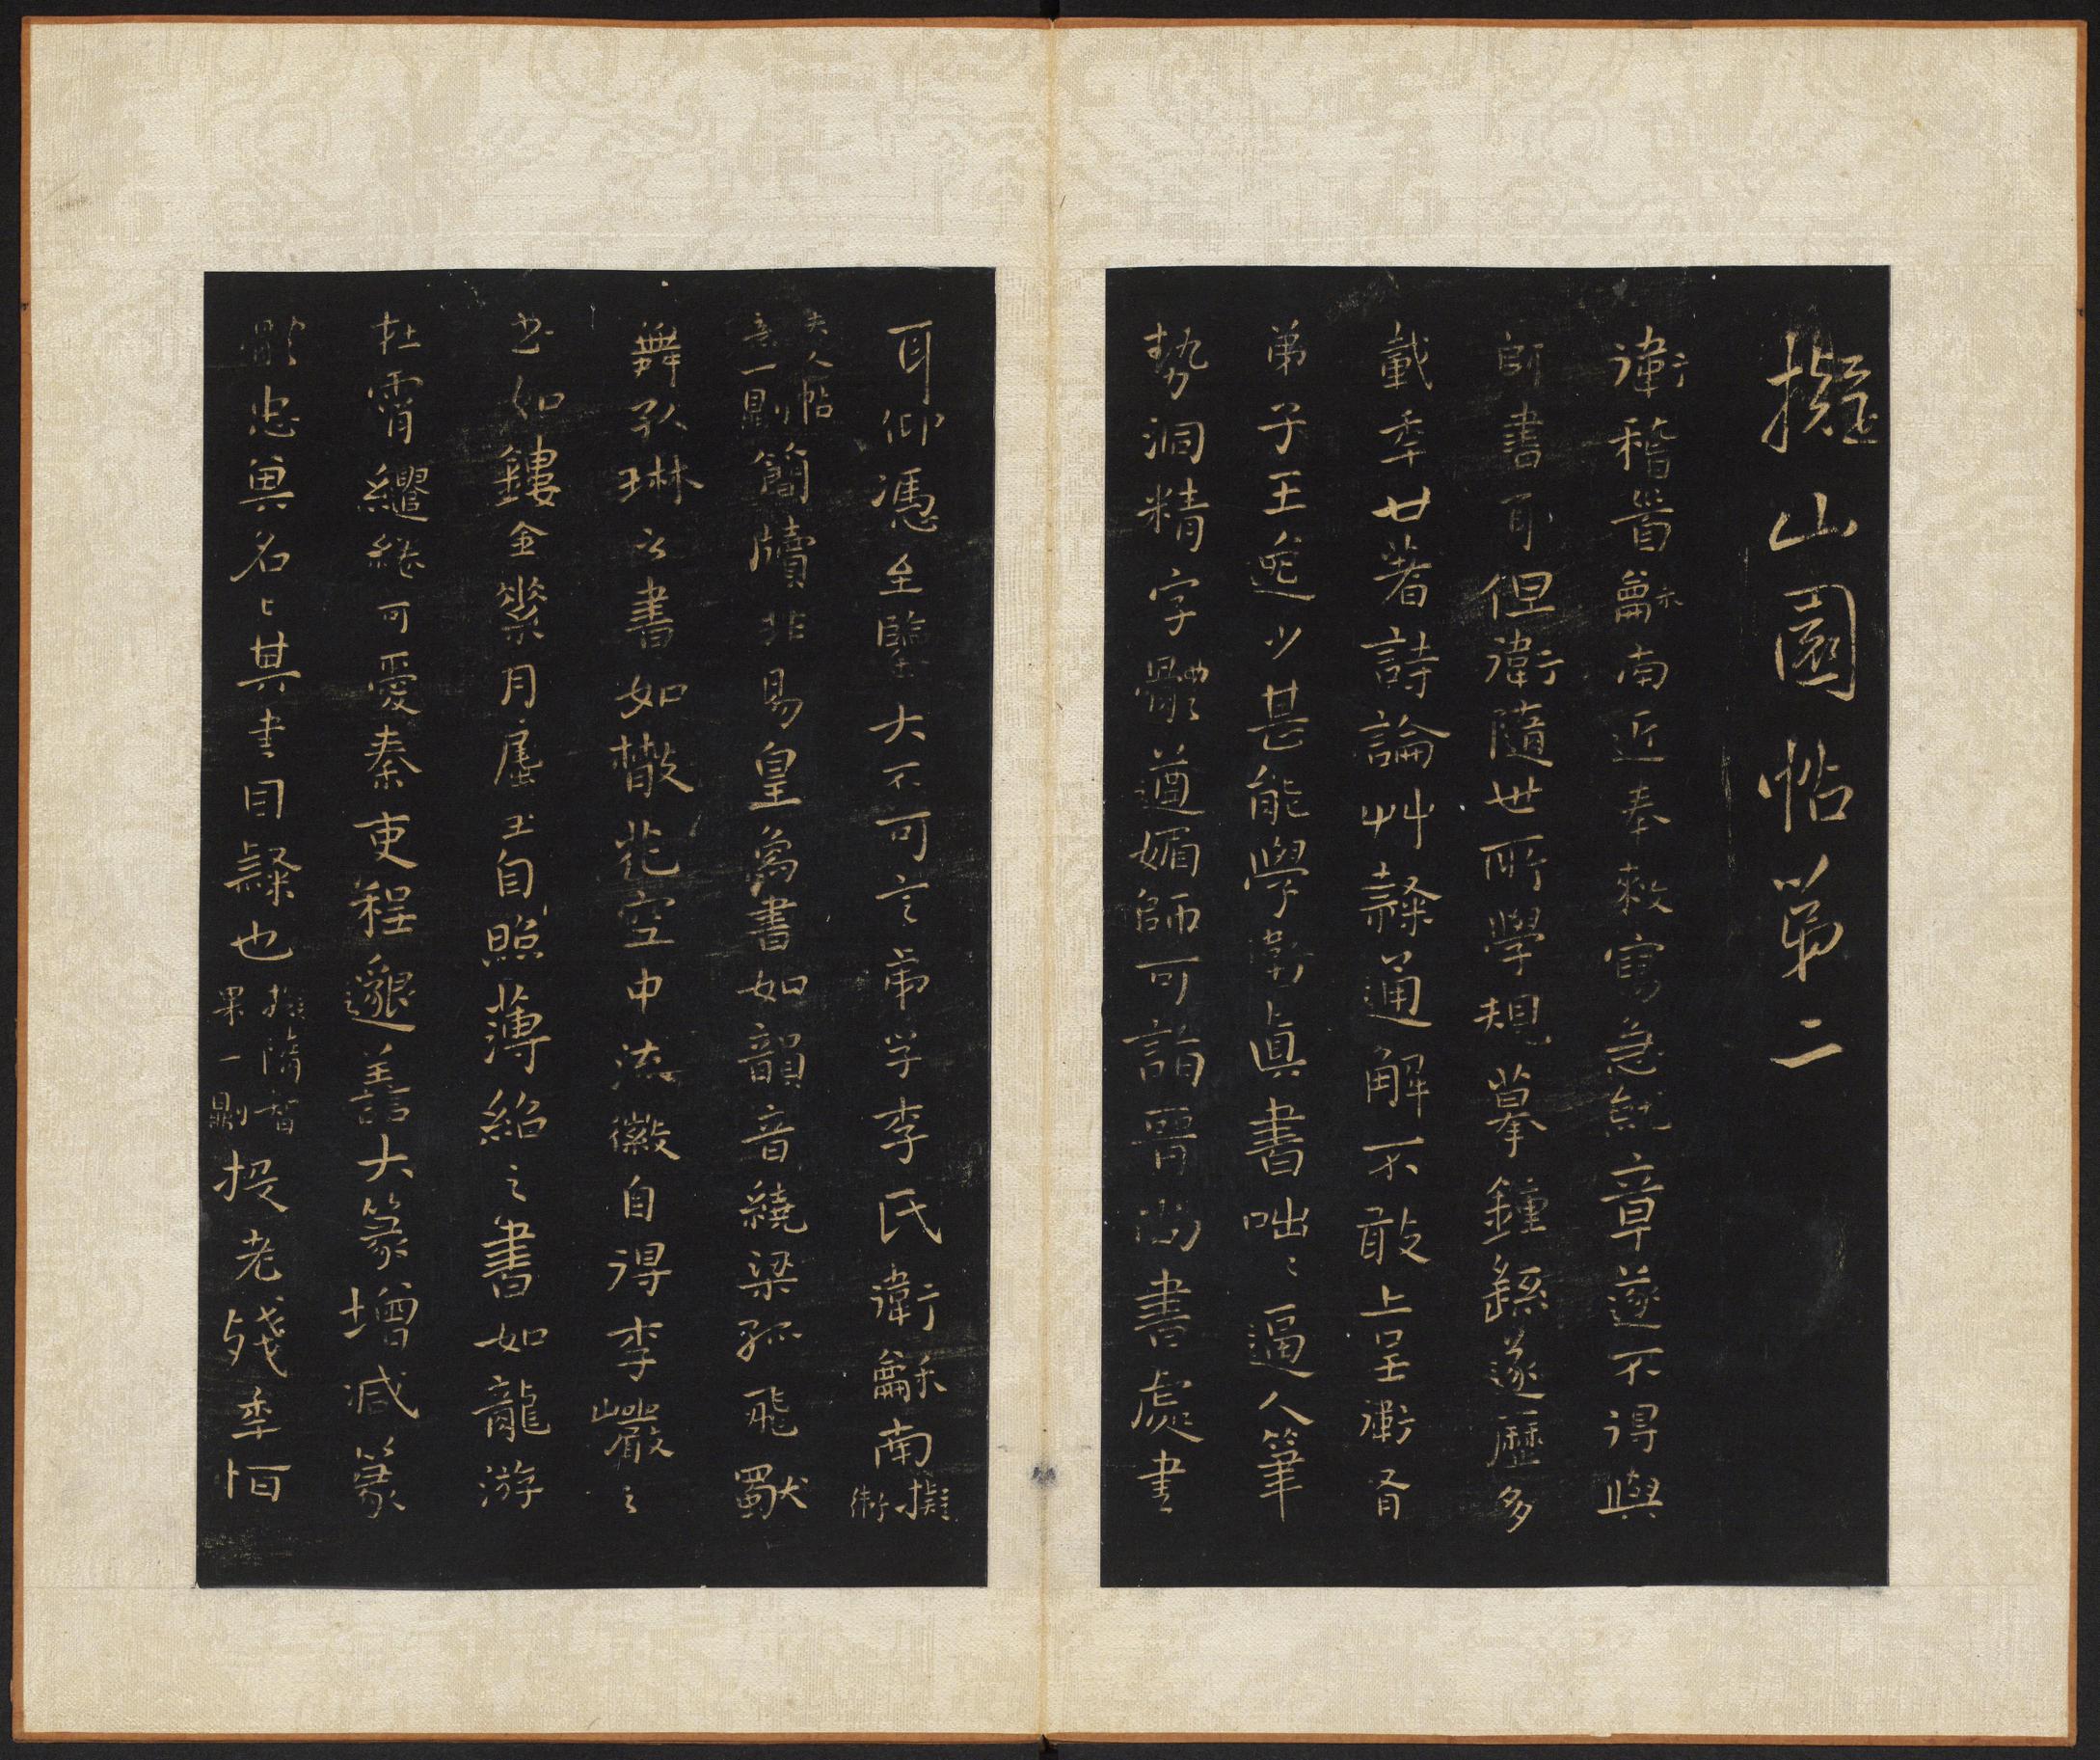 擬山園帖第二
衛稽首龢南近奉敕寫急就章遂不得與
師書耳但衛隨世所學規摹鍾繇遂歷多
載年廿著詩論艸隸通解不敢上呈衛有
弟子王逸少甚能學衛真書咄〻逼人筆
勢洞精字體遒媚師可詣晉尚書處書
耳仰憑至鑒大不可言弟子李氏衛龢南擬衛
夫人帖意一則簡牘非易皇象書如韻音繞梁孤飛獨
舞孔琳之書如散花空中流徽自得李巖之
書如鏤金素月屈玉自照薄紹之書如龍游
在霄繾綣可愛秦吏程邈善大篆增減篆
體忠異名〻其書曰隸也擬隋智果一則投老殘年恒